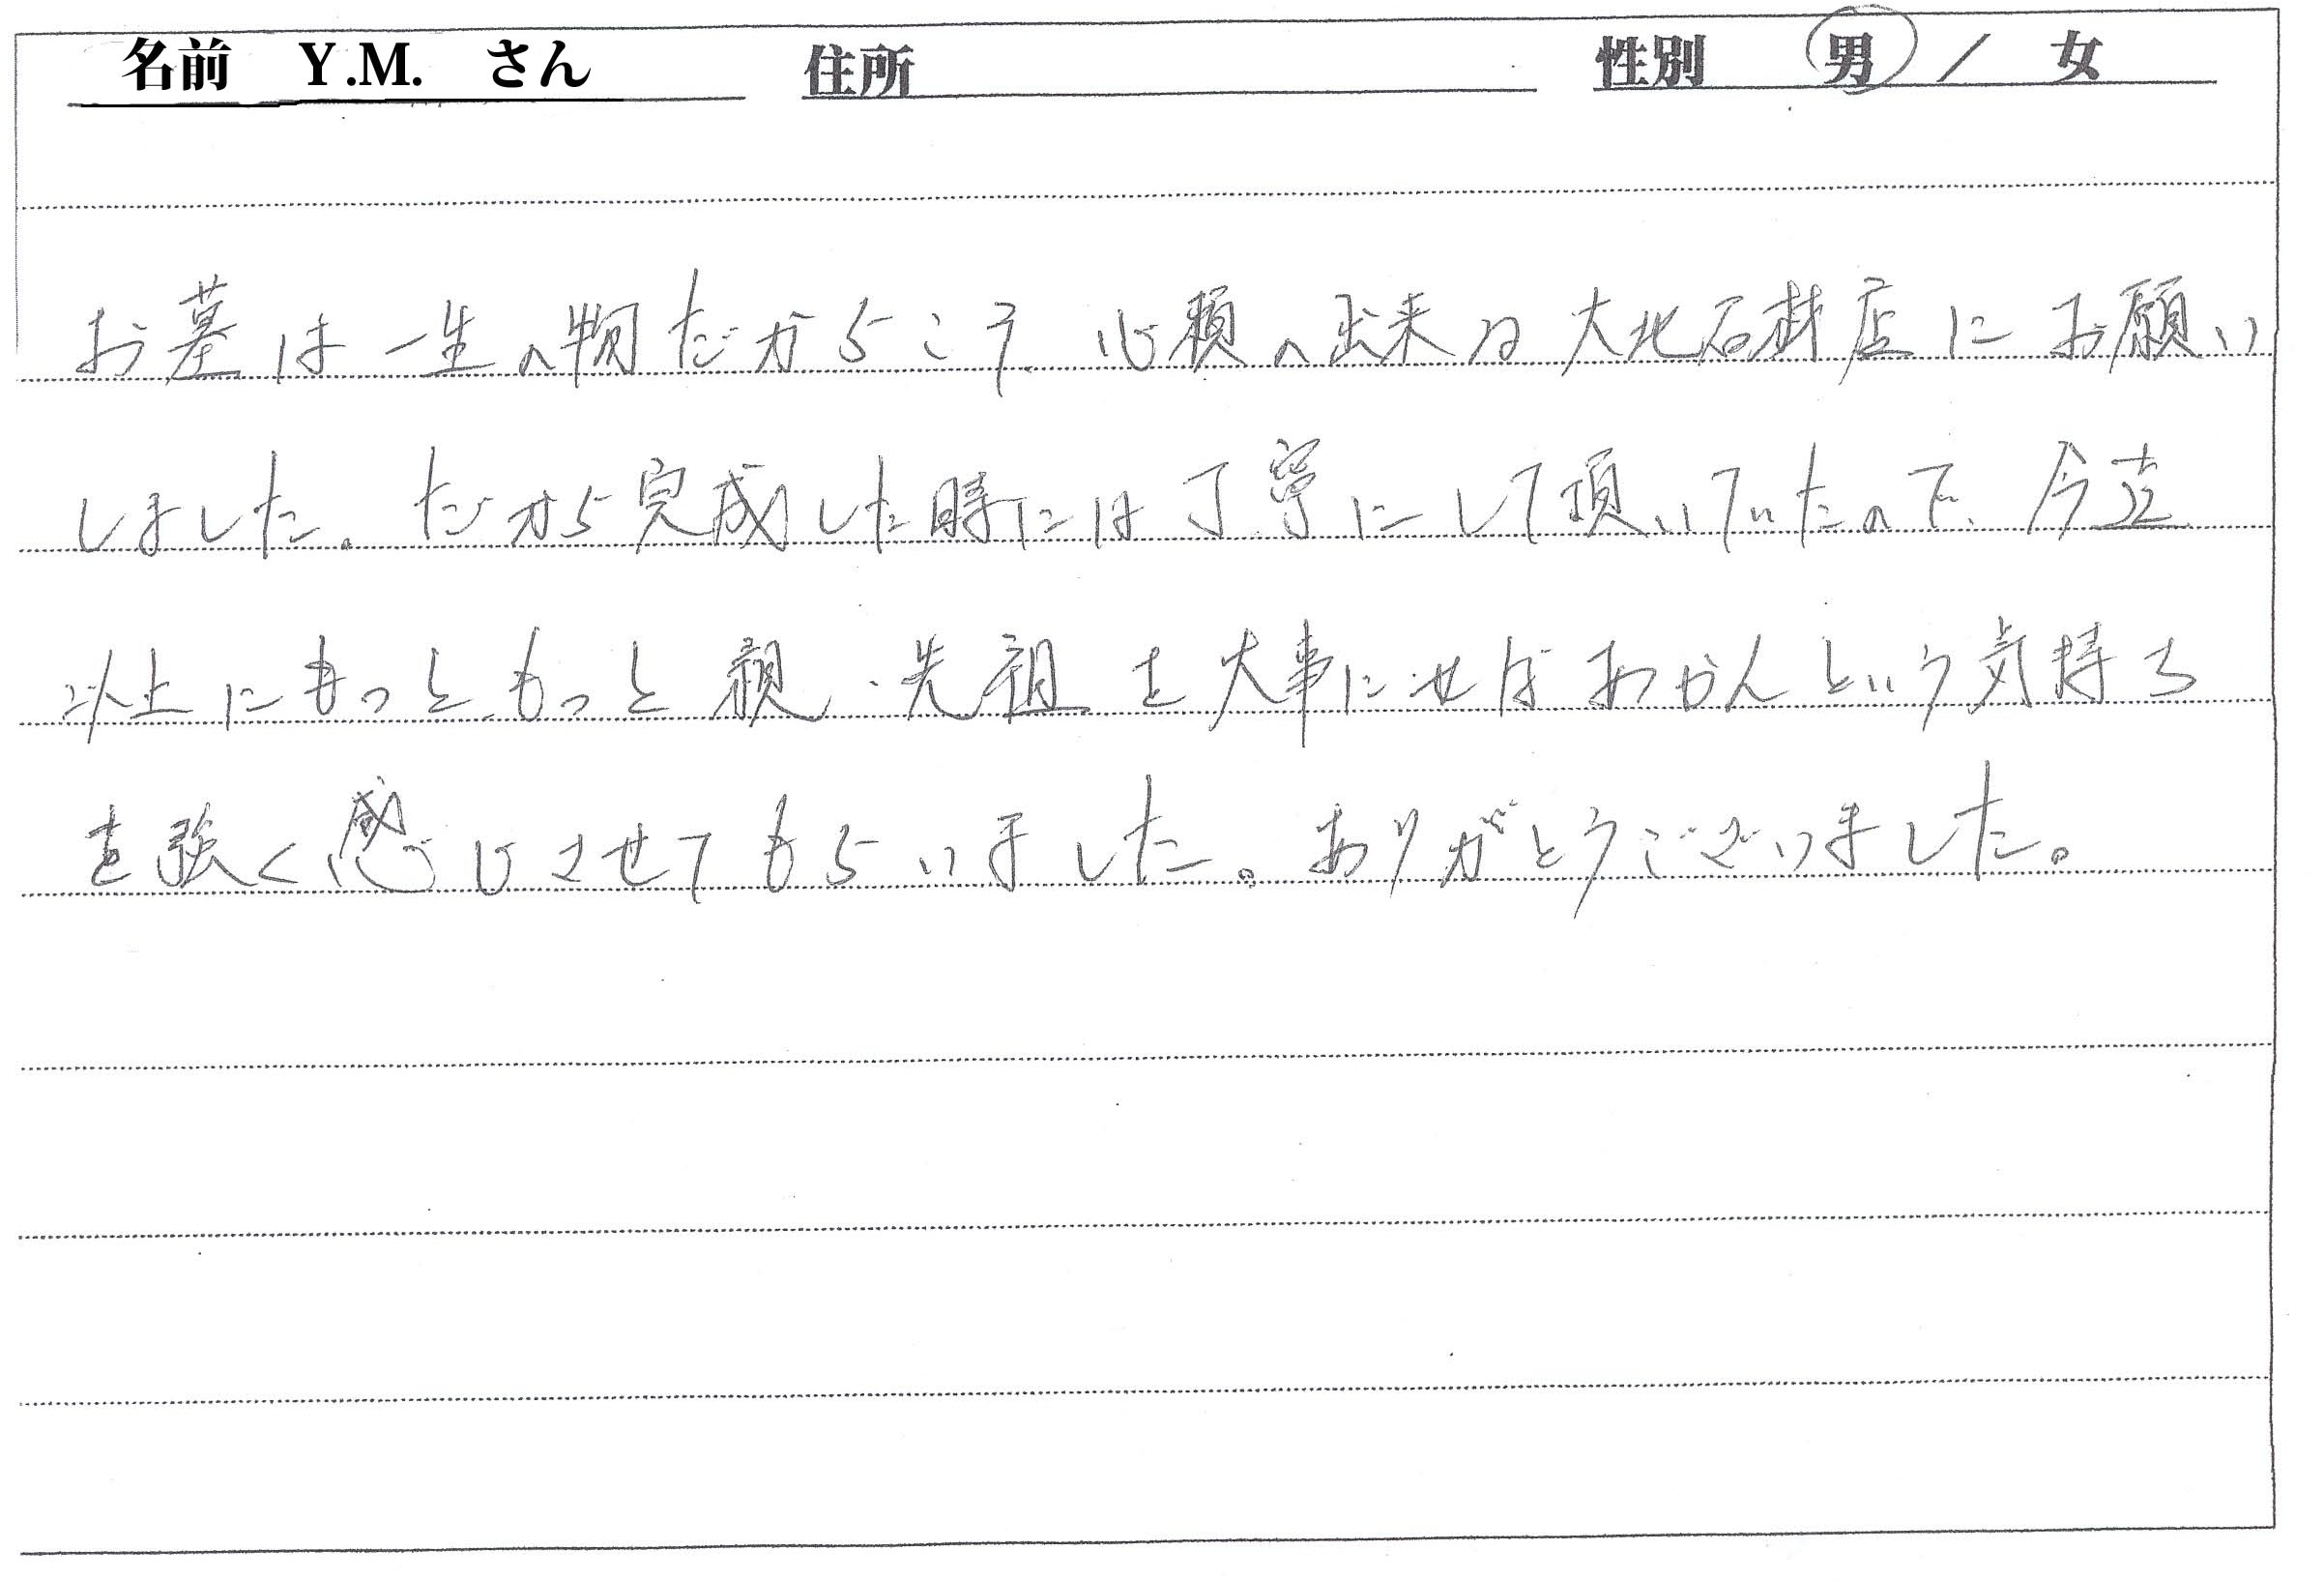 名前 Y.M. さん 住所 性別 男 / 女
お墓は一生の物だからこそ、心頼の出来る大北石材店にお願い
しました。だから完成した時には丁寧にして頂いていたので、今迄
以上にもっともっと親・先祖を大事にせばあかんという気持ち
を強く感じさせてもらいました。ありがとうございました。